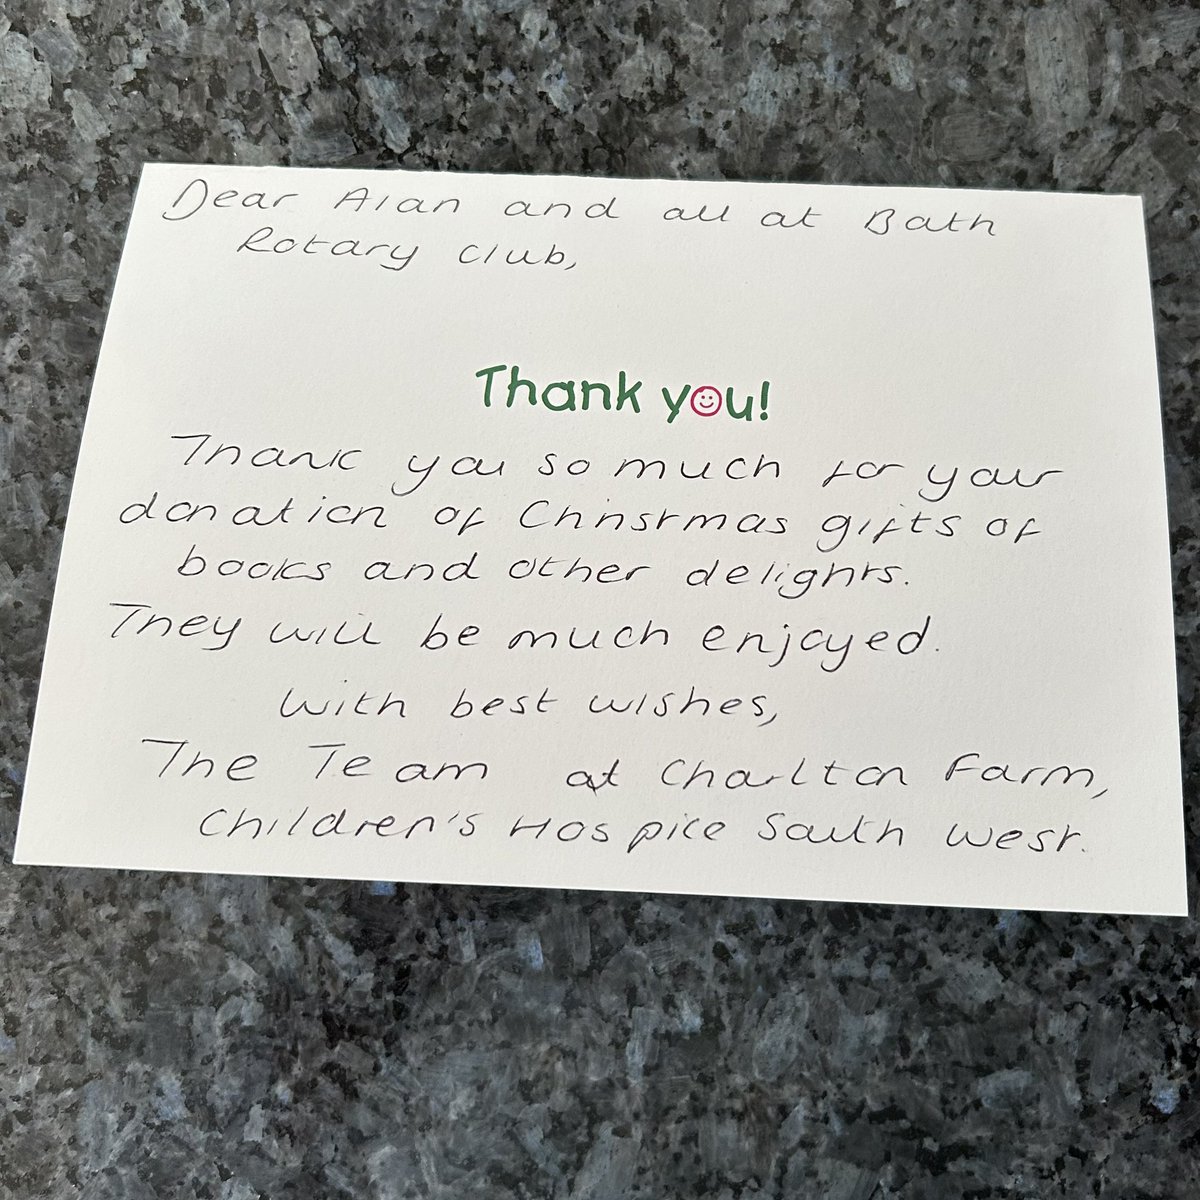 Dear Alan and all at Bath
Rotary Club,
Thank you!
Thank you so much for your
donation of Christmas gifts of
books and other delights.
They will be much enjoyed.
With best wishes,
The Team at Charlton Farm,
Children's Hospice South West.